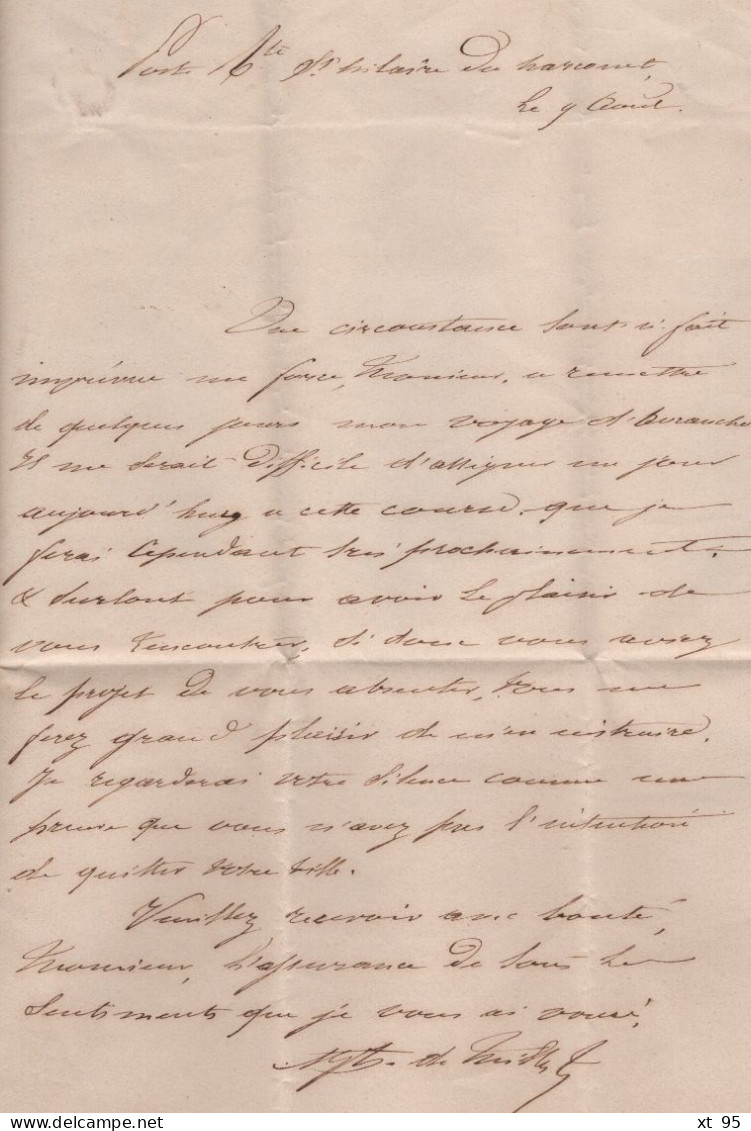 Poste Rte St hilaire du harcouet,
Le 9 Aout.
Une circonstance tout à fait
imprévue me force, Monsieur, a remettre
de quelques jours mon voyage d'Avranches
Il me serait difficile d'assigner un jour
aujourd'huy a cette course, que je
ferai cependant très prochainement,
& surtout pour avoir le plaisir de
vous rencontrer, si donc vous aviez
le projet de vous absenter, vous me
ferez grand plaisir de m'en instruire.
Je regarderai votre silence comme une
preuve que vous n'avez pas l'intention
de quitter votre ville.
Veuillez recevoir avec bonté,
Monsieur, l'assurance de tous les
sentiments que je vous ai voués,
de
xt 95